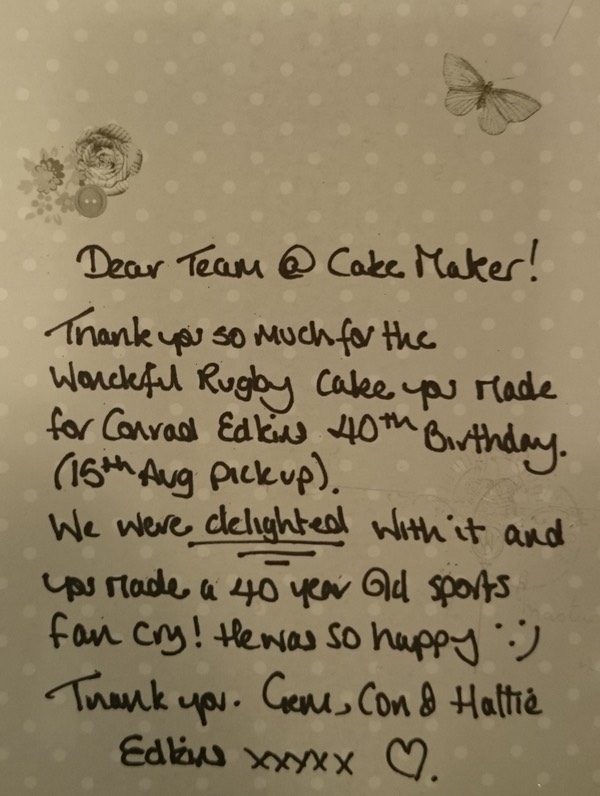 Dear Team @ Cake Maker!
Thank you so much for the
Wonderful Rugby Cake you made
for Conrad Edkins 40th Birthday.
(15th Aug pickup).
We were delighted with it and
you made a 40 year old sports
fan cry! He was so happy :)
Thank you. Gem, Con & Hattie
Edkins xxxxx ♡.